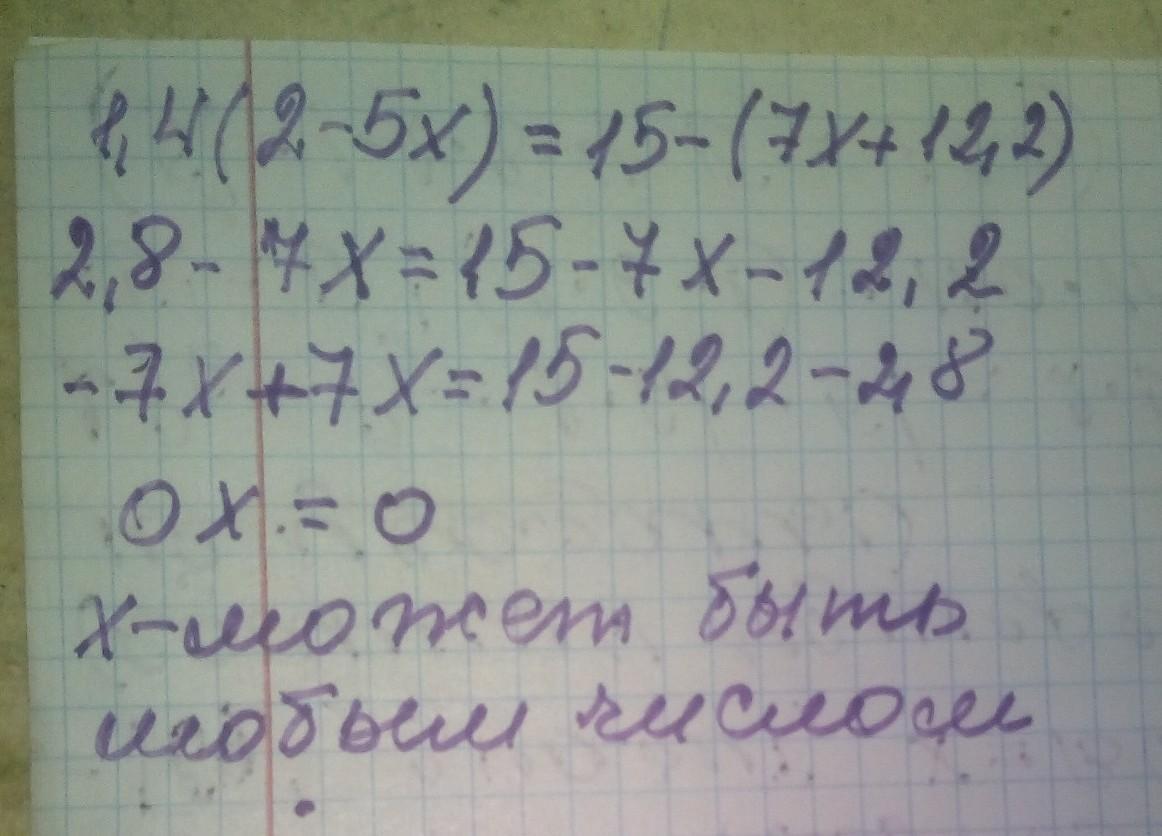 1,4(2-5x)=15-(7x+12,2)
2,8-7x=15-7x-12,2
-7x+7x=15-12,2-2,8
0x=0
x-может быть
любым числом
.